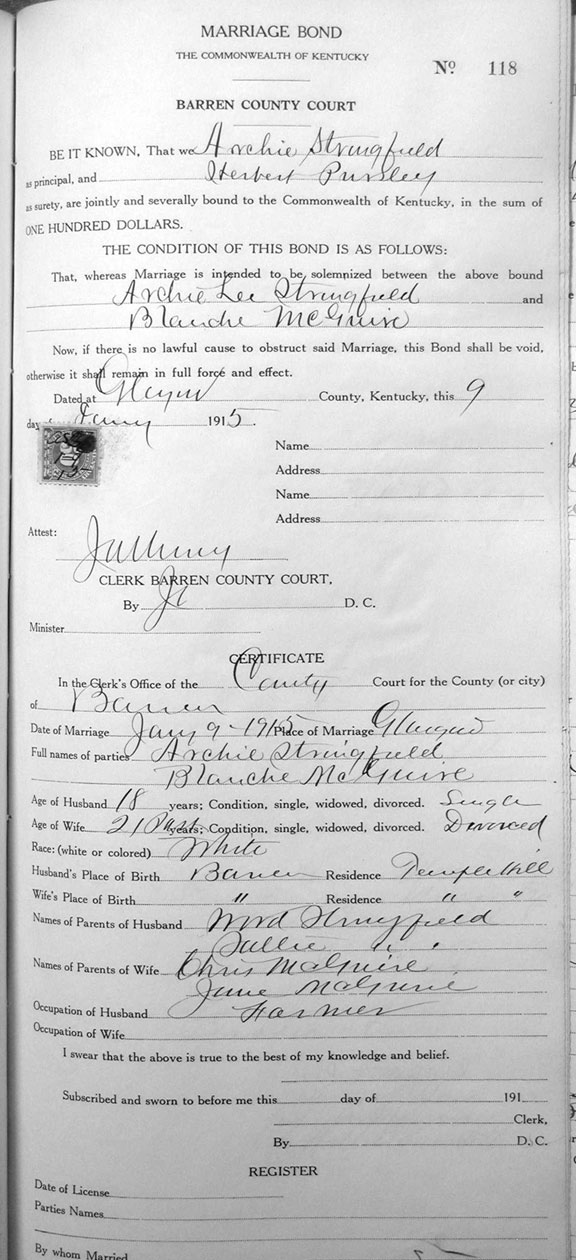 MARRIAGE BOND
THE COMMONWEALTH OF KENTUCKY
No 118
BARREN COUNTY COURT
BE IT KNOWN, That we Archie Stringfield
as principal, and Herbert Pursley
as surety, are jointly and severally bound to the Commonwealth of Kentucky, in the sum of
ONE HUNDRED DOLLARS.
THE CONDITION OF THIS BOND IS AS FOLLOWS:
That, whereas Marriage is intended to be solemnized between the above bound
Archie Lee Stringfield and
Blanche McGuire
Now, if there is no lawful cause to obstruct said Marriage, this Bond shall be void,
otherwise it shall remain in full force and effect.
Dated at Glasgow County, Kentucky, this 9
day 1915.
Name
Address
Name
Address
Attest:
CLERK BARREN COUNTY COURT,
By D. C.
Minister
CERTIFICATE
In the Clerk's Office of the County Court for the County (or city)
of Barren
Date of Marriage Jany 9 - 1915 Place of Marriage Glasgow
Full names of parties Archie Stringfield
Blanche McGuire
Age of Husband 18 years; Condition, single, widowed, divorced. Single
Age of Wife 21 Past years; Condition, single, widowed, divorced. Divorced
Race: (white or colored) White
Husband's Place of Birth Barren Residence Temple Hill
Wife's Place of Birth " Residence " "
Names of Parents of Husband Word Stringfield
Sallie " "
Names of Parents of Wife Chris McGuire
Jane McGuire
Occupation of Husband Farmer
Occupation of Wife
I swear that the above is true to the best of my knowledge and belief.
Subscribed and sworn to before me this day of 191
Clerk,
By D. C.
REGISTER
Date of License
Parties Names
By whom Married